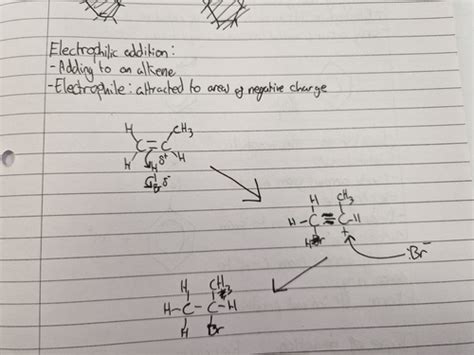 Electrophilic addition:
- Adding to an alkene
- Electrophile: attracted to area of negative charge
H CH3
C=C
H H δ+ H
Br δ-
H CH3
H-C C-H
H +
:Br-
H CH3
H-C-C-H
H Br